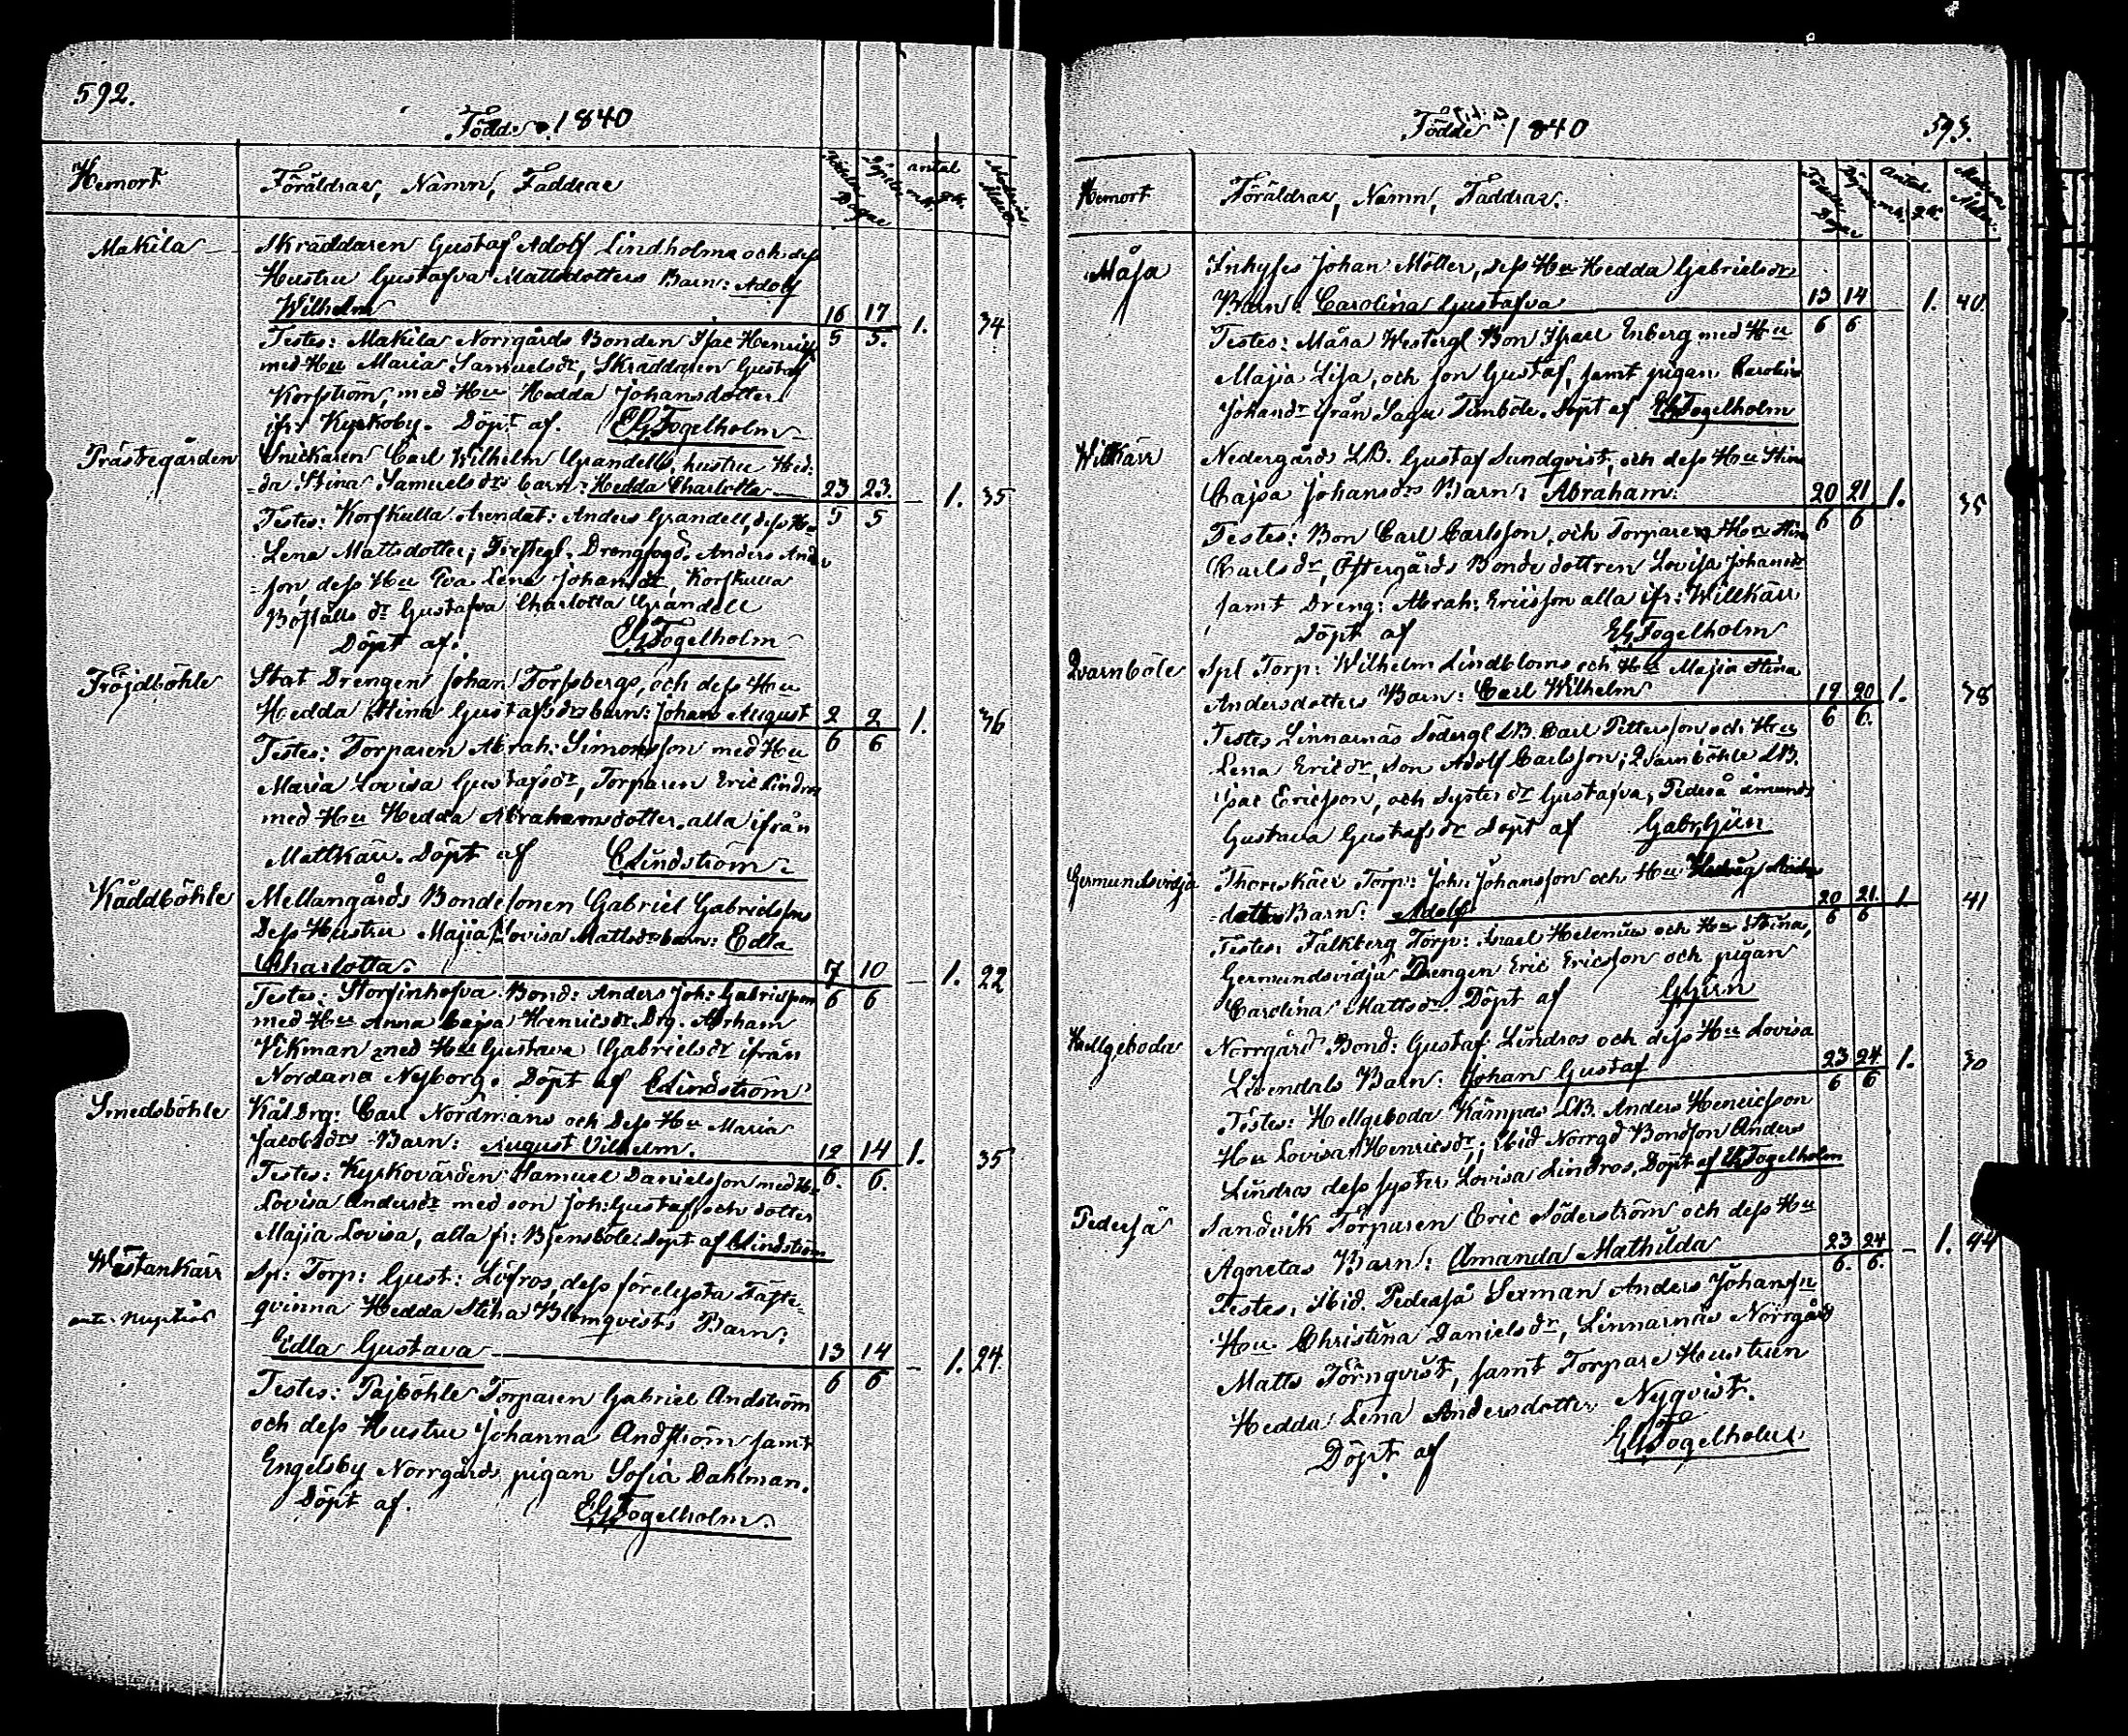 592.
Födde 1840
Hemort Föräldrar, Namn, Faddrar Födelse Döpelse Dagar antal mk. qk. Modrens Ålder
Makila Skräddaren Gustaf Adolf Lindholms och dess
Hustru Gustafva Mattsdotters Barn: Adolf
Wilhelm 16/5 17/5. 1. 34
Testes: Makila Norrgårds Bonden Isac Henriss.
med Hu Maria Samuelsdr, Skräddaren Gustaf
Korsström, med Hu Hedda Johansdotter
ifr. Kyrkoby. Döpt af. EGFogelholm
Prästegården Snickaren Carl Wilhelm Grandells, hustru Hed-
-da Stina Samuelsdrs barn: Hedda Charlotta 23/5 23/5 – 1. 35
Testes: Korskulla Arendat: Anders Grandell, dess Hu
Lena Mattsdotter; Drengfogd. Anders Anders
-son, dess Hu Eva Lena Johansdr Korskulla
dr Gustafva Charlotta Grandell
Döpt af. EGFogelholm
Fröjdböhle Stat Drengen Johan Forssbergs, och dess Hu
Hedda Stina Gustafsdrs barn: Johan August 2/6 2/6 1. 36
Testes: Torparen Abrah: Simonsson med Hu
Maria Lovisa Gustafsdr, Torparen Eric Lindros
med Hu Hedda Abrahamsdotter, alla ifrån
Mattkärr. Döpt af CLindström
Kåddböhle Mellangårds Bondesonen Gabriel Gabrielssons
Dess Hustru Majia Lovisa Mattsdrs barn: Edla
Charlotta. 7/6 10/6 – 1. 22
Testes: Storfinhofva Bond: Anders Joh: Gabrielsson
med Hu Anna Cajsa Henricsdr. Drg. Abrham
Vikman med Hu Gustava Gabrielsdr ifrån
Nordana Nyborg. Döpt af CLindström
Smedsböhle Kål Drg: Carl Nordmans och Dess Hu Maria
Jacobsdrs Barn: August Vilhelm. 12/6. 14/6. 1. 35
Testes: Kyrkovärden Samuel Danielsson med Hu
Lovisa Andersdr med son Joh: Gustaf och dotter
Majia Lovisa, alla fr: Bjensböle. Döpt af CLindström
Wästankärr Sp: Torp: Gust: Löfros, dess förelysta Fäste-
ante nuptias qvinna Hedda Stina Blomqvists Barn:
Edla Gustava 13/6 14/6 – 1. 24.
Testes: Pajböhle Torparen Gabriel Andström
och dess Hustru Johanna Andström samt
Engelsby Norrgårds pigan Sofia Dahlman.
Döpt af. EGFogelholm.
593.
Födde 1840
Hemort Föräldrar, Namn, Faddrar. Födelse Döpelse Dagar Antal mk. qk. Modrens Ålder.
Måsa Inhyses Johan Möller, dess Hu Hedda Gabrielsdrs
Barn: Carolina Gustafva 13/6 14/6 – 1. 40.
Testes: Måsa Westergl Bon Israel Enberg med Hu
Majia Lisa, och son Gustaf, samt pigan Carolina
Johansdr ifrån Sagu Timböle. Döpt af EGFogelholm
Willkärr Nedergårds LB. Gustaf Sundqvist, och dess Hu Stina
Cajsa Johansdrs Barn: Abraham. 20/6 21/6 1. 35
Testes: Bon Carl Carlsson, och Torparen Hu Stina
Carlsdr, Östergårds Bonde dottren Lovisa Johansdr
samt Dreng: Abrah: Ericsson alla ifr: Willkärr
Döpt af EGFogelholm
Qvarnböle Spl Torp: Wilhelm Lindbloms och Hu Majia Stina
Andersdotters Barn: Carl Wilhelm 19/6 20/6. 1. 38
Testes Linnarnäs Södergl LB. Carl Pettersson och Hu
Lena Ericdr, son Adolf Carlsson; Qvarnböhle LB.
Isac Ericsson, och Syster dr Gustafva, Pederså
Gustava Gustafsdr Döpt af Gabr. Gün
Germundsvidja Thorskärr Torp: Joh: Johansson och Hu Hedvig
-dotters Barn: Adolf 20/6 21/6 1. 41
Testes: Falkberg Torp: Israel Helenius och Hu Stina,
Germundsvidja Drengen Eric Ericsson och pigan
Carolina Mattsdr. Döpt af GGün
Hellgeboda Norrgård Bond: Gustaf Lindros och dess Hu Lovisa
Lövendals Barn: Johan Gustaf 23/6 24/6 1. 30
Testes: Hellgeboda Kämpas LB. Anders Henricsson
Hu Lovisa Henricsdr; Ibid Norrgd Bondson Anders
Lindros dess syster Lovisa Lindros. Döpt af EGFogelholm
Pederså Sandvik Torparen Eric Söderström och dess Hu
Agnetas Barn: Amanda Mathilda 23/6. 24/6. – 1. 44
Testes: Ibid. Pederså Sexman Anders Johanss
Hu Christina Danielsdr, Linnarnäs Norrgård
Matts Törnqvist, samt Torpare Hustrun
Hedda Lena Andersdotter Nyqvist.
Döpt af EGFogelholm